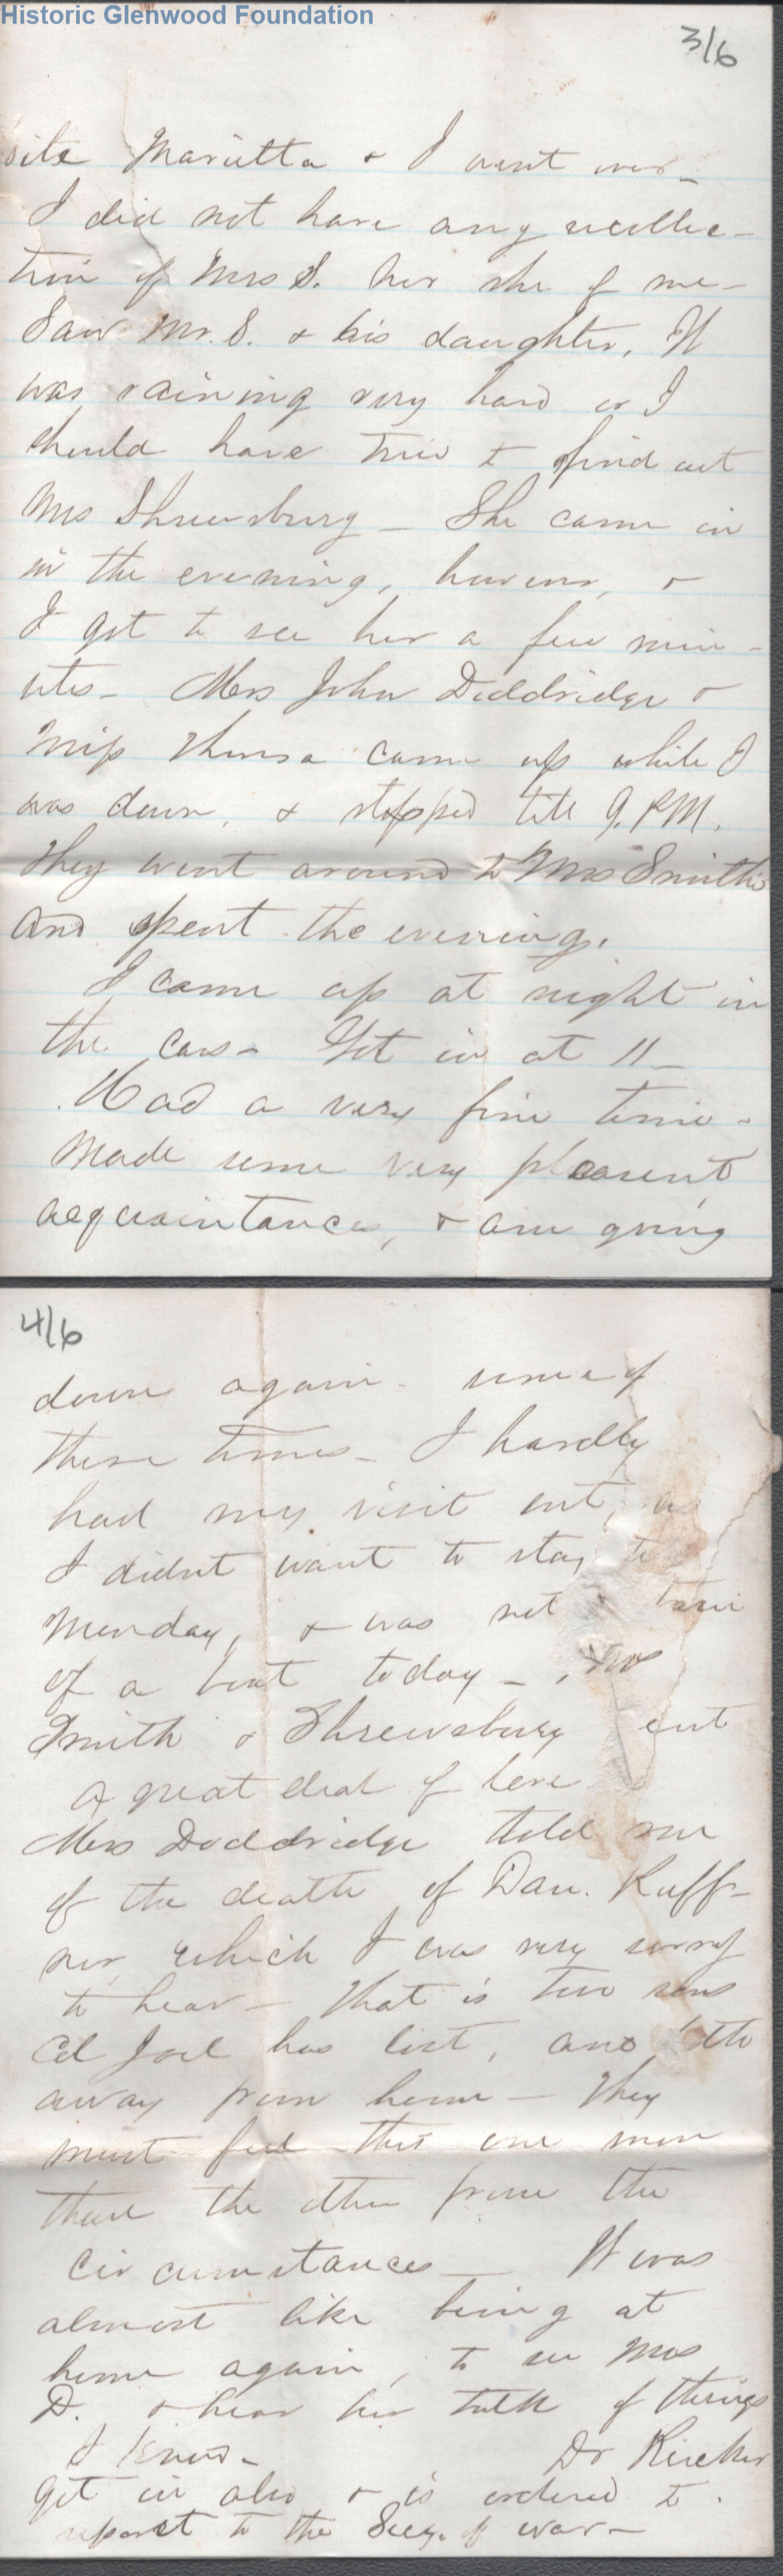 Historic Glenwood Foundation
3/6
site Marietta & I went over_
I did not have any recollec-
tion of Mrs S. nor she of me_
Saw Mr. S. & his daughter. It
was raining very hard or I
should have tried to find out
Mrs Shrewsbury _ She came in
in the evening, however, &
I got to see her a few min-
utes_ Mrs John Doddridge &
Miss came up while I
was down, & stopped till 9. P.M.
They went around to Mrs Smith's
and spent the evening.
I came up at night in
the cars_ Got in at 11_
Had a very fine time_
Made some very pleasent
acquaintances, & am going
4/6
down again some of
these times_ I hardly
had my visit out, as
I didnt want to stay
Monday, & was not
of a boat today_
Smith & Shrewsbury
a great deal of love
Mrs Doddridge told me
of the death of Dan. Ruff-
ner which I was very sorry
to hear_ That is two sons
Col Joel has lost, and
away from home_ They
must feel this one more
than the other from the
circumstances_ It was
almost like being at
home again, to see Mrs
D. & hear her talk of things
I knew_ Dr
got in also & is ordered to
report to the Secy. of war_